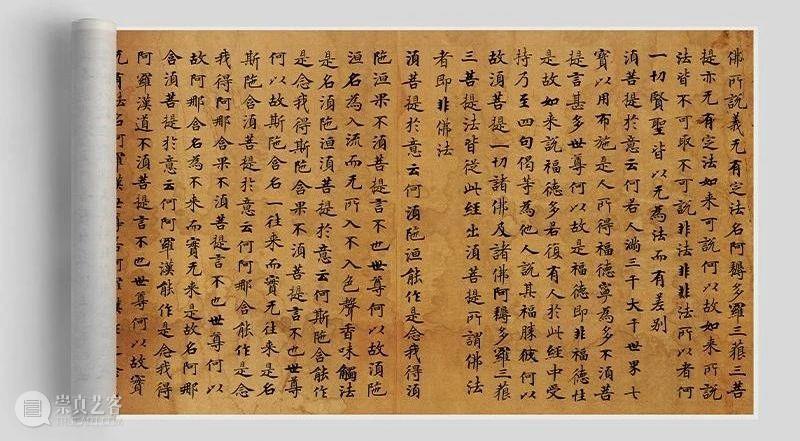 佛所說義无有定法名阿耨多羅三藐三菩
提亦无有定法如來可說何以故如來所說
法皆不可取不可說非法非非法所以者何
一切賢聖皆以无為法而有差別
湏菩提於意云何若人滿三千大千世界七
寶以用布施是人所得福德寧為多不湏菩
提言甚多世尊何以故是福德即非福德性
是故如來說福德多若復有人於此經中受
持乃至四句偈等為他人說其福勝彼何以
故湏菩提一切諸佛及諸佛阿耨多羅三藐
三菩提法皆從此經出湏菩提所謂佛法
者即非佛法
湏菩提於意云何湏陁洹能作是念我得湏
陁洹果不湏菩提言不也世尊何以故湏陁
洹名為入流而无所入不入色聲香味觸法
是名湏陁洹湏菩提於意云何斯陁含能作
是念我得斯陁含果不湏菩提言不也世尊
何以故斯陁含名一往來而實无往來是名
斯陁含湏菩提於意云何阿那含能作是念
我得阿那含果不湏菩提言不也世尊何以
故阿那含名為不來而實无來是故名阿那
含湏菩提於意云何阿羅漢能作是念我得
阿羅漢道不湏菩提言不也世尊何以故實
无有法名阿羅漢世尊若阿羅漢
崇真艺客